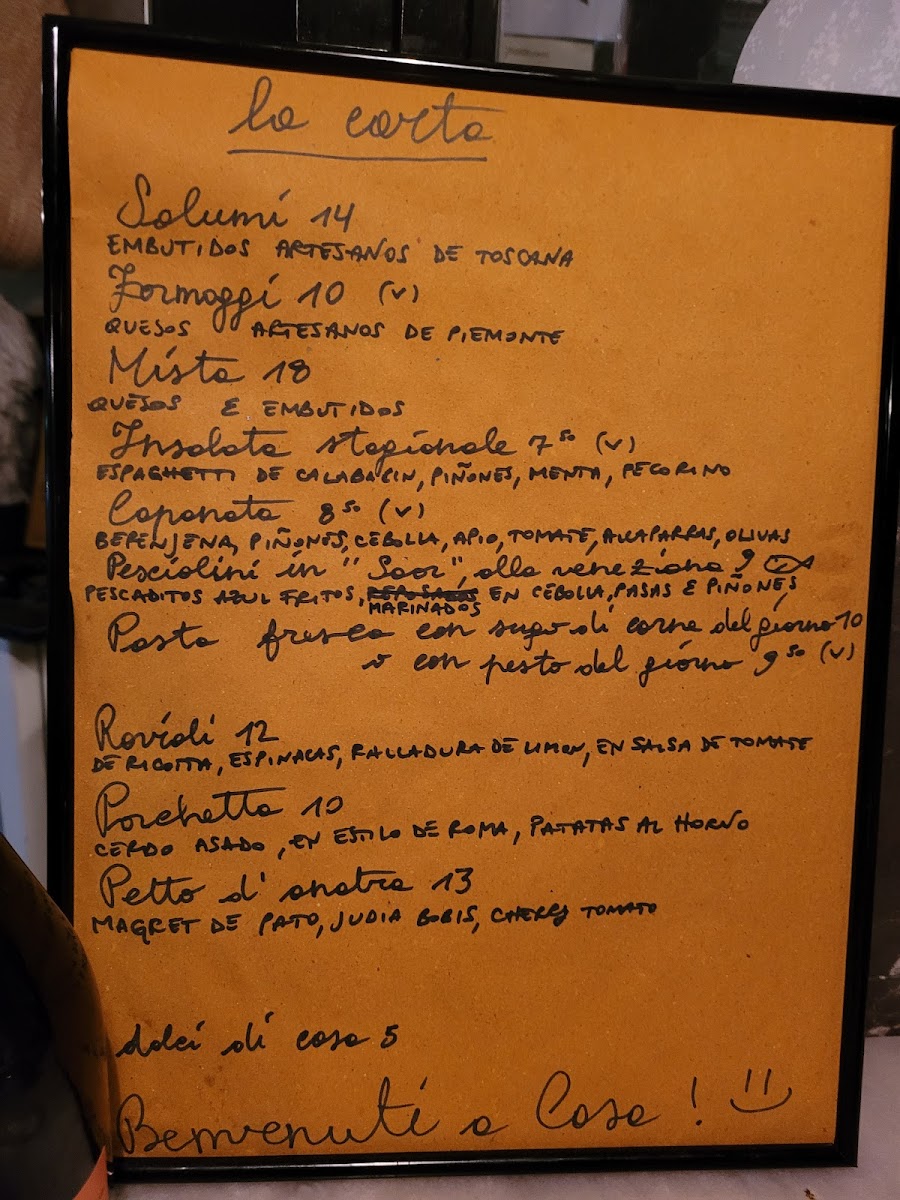 la carta
Salumi 14
EMBUTIDOS ARTESANOS DE TOSCANA
Formaggi 10 (v)
QUESOS ARTESANOS DE PIEMONTE
Mista 18
QUESOS E EMBUTIDOS
Insalata stagionale 7⁵⁰ (v)
ESPAGHETTI DE CALABACIN, PIÑONES, MENTA, PECORINO
Caponata 8⁵⁰ (v)
BEPENJENA, PIÑONES, CEBOLLA, APIO, TOMATE, ALCAPARRAS, OLIVAS
Pesciolini in "Saor", alla veneziana 9
PESCADITOS AZUL FRITOS, MARINADOS EN CEBOLLA, PASAS E PIÑONES
Pasta fresca con sugo di carne del giorno 10
o con pesto del giorno 9⁵⁰ (v)
Ravioli 12
DE RICOTTA, ESPINACAS, RALLADURA DE LIMON, EN SALSA DE TOMATE
Porchetta 10
CERDO ASADO, EN ESTILO DE ROMA, PATATAS AL HORNO
Petto d'anatra 13
MAGRET DE PATO, JUDIA BOBIS, CHERRY TOMATO
dolci di casa 5
Benvenuti a Casa!